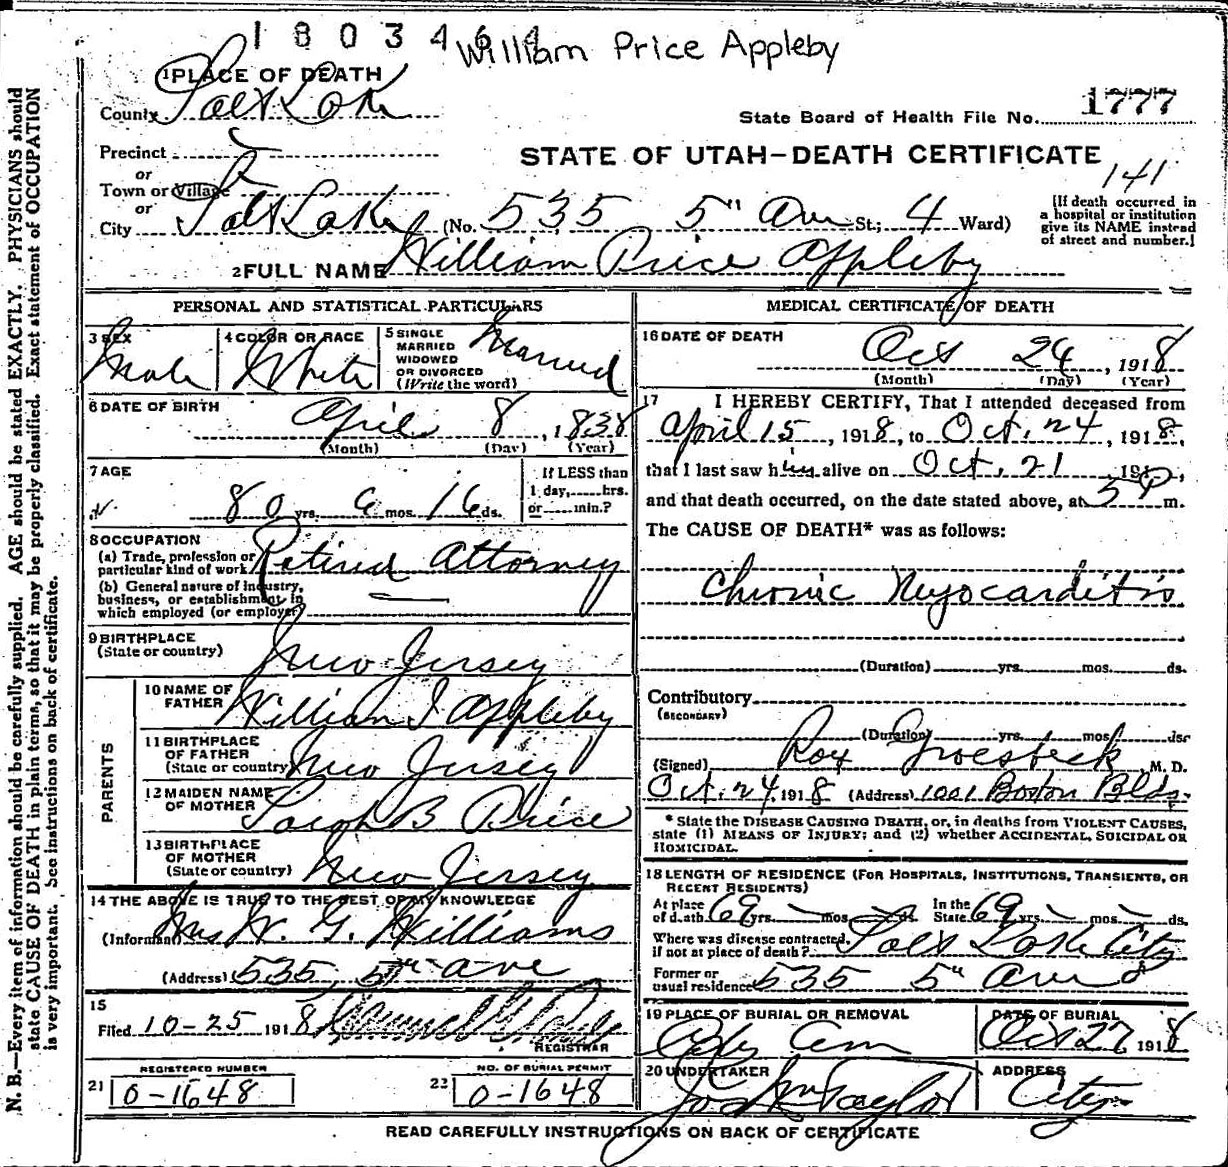 1803464
William Price Appleby
1 PLACE OF DEATH
County Salt Lake
State Board of Health File No. 1777
Precinct
or
Town or Village
or
STATE OF UTAH—DEATH CERTIFICATE
141
City Salt Lake (No. 535 5" Ave St.; 4 Ward)
[If death occurred in
a hospital or institution
give its NAME instead
of street and number.]
2 FULL NAME William Price Appleby
PERSONAL AND STATISTICAL PARTICULARS
3 SEX
Male
4 COLOR OR RACE
White
5 SINGLE
MARRIED
WIDOWED
OR DIVORCED
(Write the word)
Married
6 DATE OF BIRTH
April 8, 1838
(Month) (Day) (Year)
7 AGE
80 yrs. 6 mos. 16 ds.
If LESS than
1 day,......hrs.
or......min.?
8 OCCUPATION
(a) Trade, profession or
particular kind of work Retired Attorney
(b) General nature of industry,
business, or establishment in
which employed (or employer)
9 BIRTHPLACE
(State or country) New Jersey
PARENTS
10 NAME OF
FATHER William I Appleby
11 BIRTHPLACE
OF FATHER
(State or country) New Jersey
12 MAIDEN NAME
OF MOTHER Sarah B Price
13 BIRTHPLACE
OF MOTHER
(State or country) New Jersey
14 THE ABOVE IS TRUE TO THE BEST OF MY KNOWLEDGE
(Informant) Mrs W. G. Williams
(Address) 535, 5th ave
15
Filed 10-25 1918
REGISTRAR
REGISTERED NUMBER
21 0-1648
NO. OF BURIAL PERMIT
22 0-1648
MEDICAL CERTIFICATE OF DEATH
16 DATE OF DEATH
Oct 24, 1918
(Month) (Day) (Year)
17 I HEREBY CERTIFY, That I attended deceased from
April 15, 1918, to Oct. 24, 1918,
that I last saw him alive on Oct. 21 191
and that death occurred, on the date stated above, at 5 P m.
The CAUSE OF DEATH* was as follows:
Chronic Myocarditis
(Duration) yrs. mos. ds.
Contributory
(SECONDARY)
(Duration) yrs. mos. ds.
(Signed) Roy Groesbeck, M. D.
Oct. 24, 1918 (Address) 1001 Boston Bldg.
* State the DISEASE CAUSING DEATH, or, in deaths from VIOLENT CAUSES,
state (1) MEANS OF INJURY; and (2) whether ACCIDENTAL, SUICIDAL OR
HOMICIDAL.
18 LENGTH OF RESIDENCE (FOR HOSPITALS, INSTITUTIONS, TRANSIENTS, OR
RECENT RESIDENTS)
At place
of death 69 yrs. – mos. – ds.
In the
State 69 yrs. – mos. – ds.
Where was disease contracted,
if not at place of death? Salt Lake City
Former or
usual residence 535 5" Ave
19 PLACE OF BURIAL OR REMOVAL
City Cem
DATE OF BURIAL
Oct 27 1918
20 UNDERTAKER
Jos Wm Taylor
ADDRESS
City
READ CAREFULLY INSTRUCTIONS ON BACK OF CERTIFICATE
N. B.—Every item of information should be carefully supplied. AGE should be stated EXACTLY. PHYSICIANS should
state CAUSE OF DEATH in plain terms, so that it may be properly classified. Exact statement of OCCUPATION
is very important. See instructions on back of certificate.